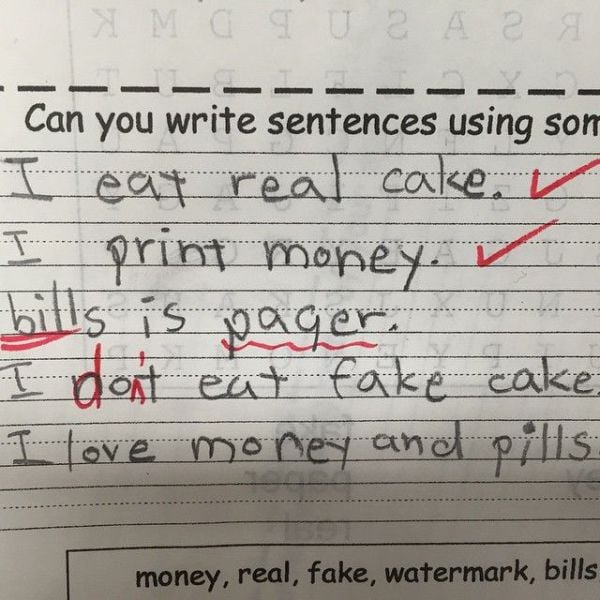 Can you write sentences using som
I eat real cake.
I print money.
bills is pager.
I don't eat fake cake
I love money and pills.
money, real, fake, watermark, bills